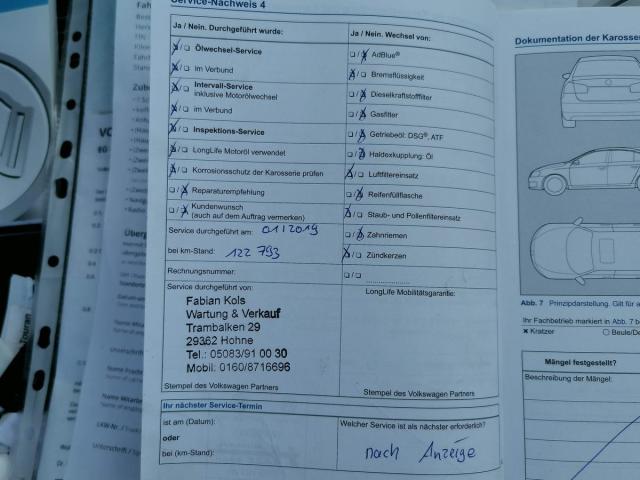 Service-Nachweis 4
Ja / Nein. Durchgeführt wurde:
Ölwechsel-Service
im Verbund
Intervall-Service
inklusive Motorölwechsel
im Verbund
Inspektions-Service
LongLife Motoröl verwendet
Korrosionsschutz der Karosserie prüfen
Reparaturempfehlung
Kundenwunsch
(auch auf dem Auftrag vermerken)
Service durchgeführt am: 01/2019
bei km-Stand: 122 793
Rechnungsnummer:
Service durchgeführt von:
Fabian Kols
Wartung & Verkauf
Trambalken 29
29362 Hohne
Tel.: 05083/91 00 30
Mobil: 0160/8716696
Stempel des Volkswagen Partners
Ja / Nein. Wechsel von:
AdBlue®
Bremsflüssigkeit
Dieselkraftstofffilter
Gasfilter
Getriebeöl: DSG®, ATF
Haldexkupplung: Öl
Luftfiltereinsatz
Reifenfüllflasche
Staub- und Pollenfiltereinsatz
Zahnriemen
Zündkerzen
LongLife Mobilitätsgarantie:
Stempel des Volkswagen Partners
Ihr nächster Service-Termin
ist am (Datum):
oder
bei (km-Stand):
Welcher Service ist als nächster erforderlich?
nach Anzeige
Dokumentation der Karosser
Abb. 7 Prinzipdarstellung. Gilt für a
Ihr Fachbetrieb markiert in Abb. 7 b
x Kratzer
Beule/De
Mängel festgestellt?
Beschreibung der Mängel:
Touran